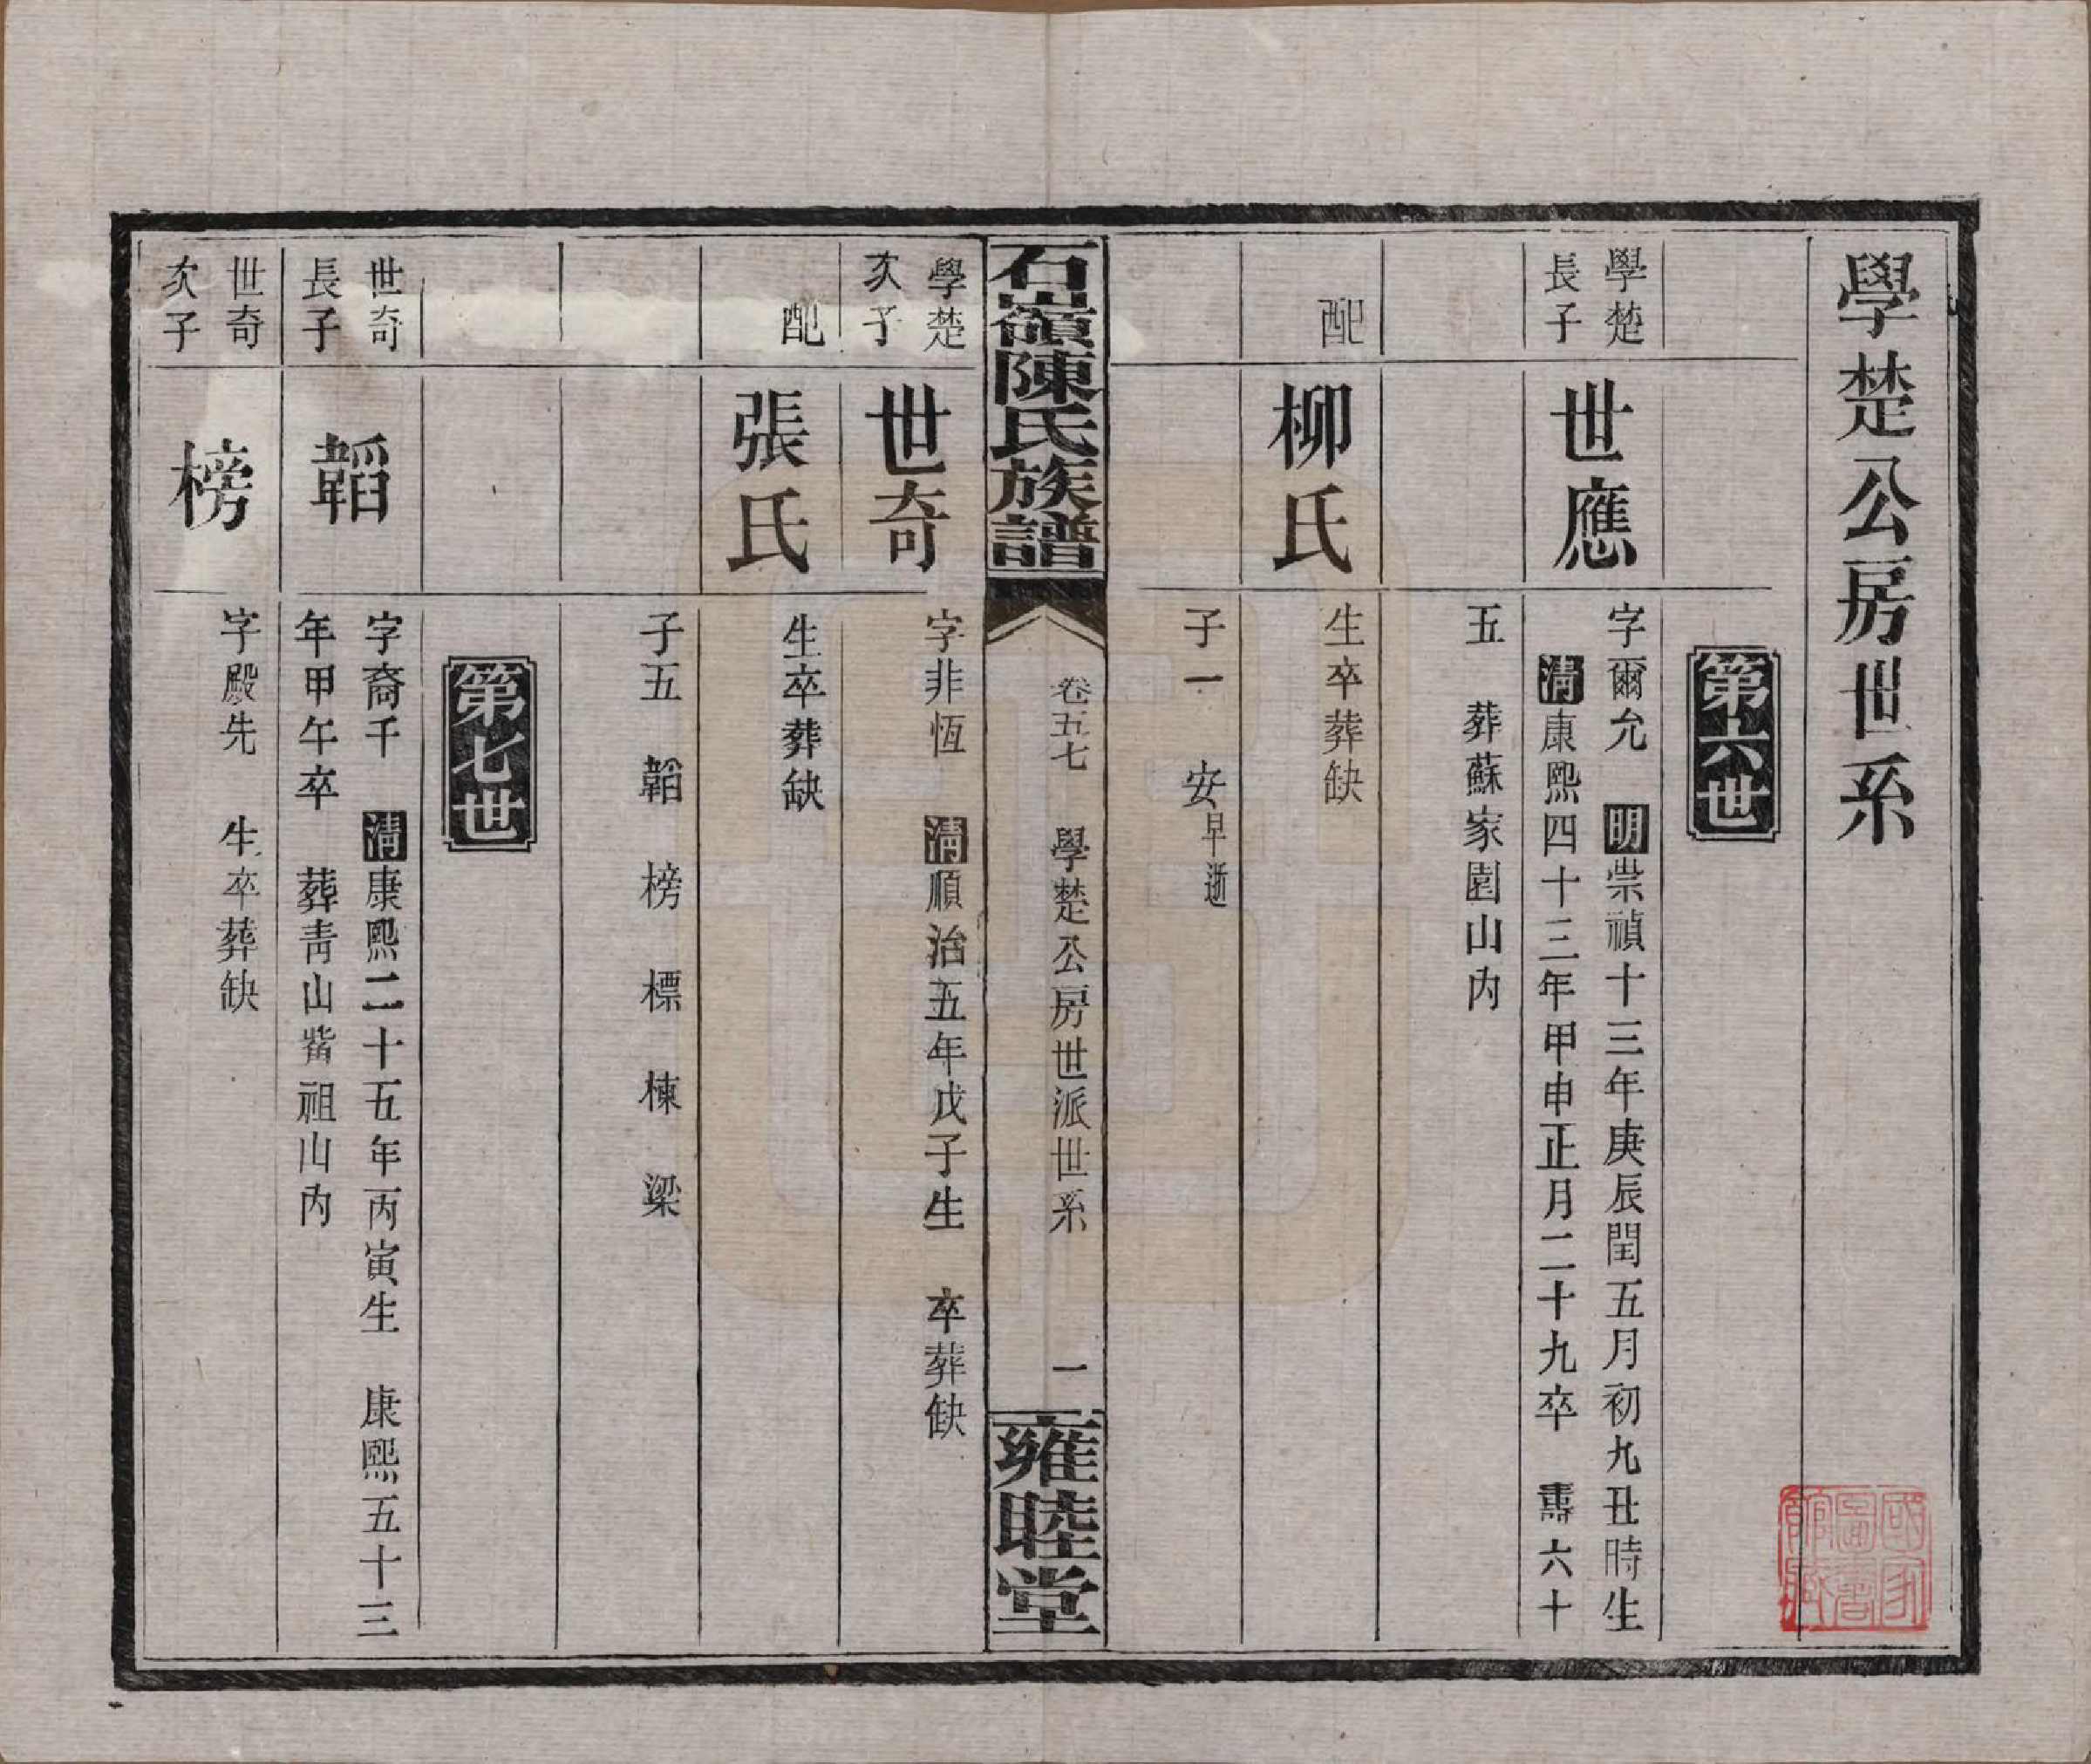 學楚公房世系
第六世
學楚
長子
世應
字爾允　明崇禎十三年庚辰閏五月初九丑時生
清康熙四十三年甲申正月二十九卒　壽六十
五　葬蘇家園山內
配
柳氏
生卒葬缺
子一　安早逝
石嶺陳氏族譜
卷五七　學楚公房世派世系　一
雍睦堂
學楚
次子
世奇
字非恆　清順治五年戊子生　卒葬缺
配
張氏
生卒葬缺
子五　韜　榜　標　棟　梁
第七世
世奇
長子
韜
字裔千　清康熙二十五年丙寅生　康熙五十三
年甲午卒　葬青山嘴祖山內
世奇
次子
榜
字殿先　生卒葬缺
國家
圖書
館藏